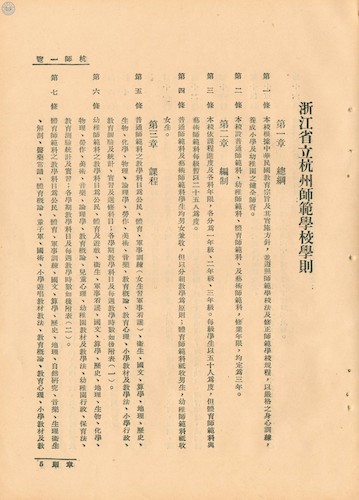 杭師一覽
浙江省立杭州師範學校學則
第一章　總綱
第一條　本校根據中華民國教育宗旨及其實施方針，並遵照師範學校法及修正師範學校規程，以嚴格之身心訓練，
養成小學及幼稚園之健全師資。
第二條　本校設普通師範科、幼稚師範科、體育師範科、及藝術師範科，修業年限，均定爲三年。
第二章　編制
第三條　本校依課程進度及各科年限，各分爲一年級、二年級、三年級，每級學生以五十人爲度，但體育師範科與
藝術師範科每級暫習二十五人爲度。
第四條　普通師範科及藝術師範科學生均男女兼收，但以分級教學爲原則；體育師範科祇收男生，幼稚師範科祇收
女生。
第三章　課程
第五條　普通師範科之教學科目爲公民、體育、軍事訓練（女生習軍事看護）、衛生、國文、算學、地理、歷史、
生物、化學、物理、論理學、勞作、美術、音樂、教育概論、教育心理、小學教材及教學法、小學行政、
教育測驗及統計、實習，及選修科目；各學期教學科目及每週教學時數如後附表（一）。
第六條　幼稚師範科之教學科目爲公民、體育及遊戲、衛生、軍事看護、國文、算學、歷史、地理、生物、化學、
物理、勞作、美術、音樂、論理學、教育概論、兒童心理、幼稚園教材及教學法、幼稚園行政、保育法、
教育測驗統計及實習；各學期教學科目及每週教學時數如後附表（二）。
第七條　體育師範科之教學科目爲公民、體育、軍事訓練、國文、算學、歷史、地理、自然研究、音樂、生理衛生
、解剖、醫藥常識、體育概論、童子軍、國術、小學遊唱教材教法、教育概論、教育心理、小學教材及教
章則　5